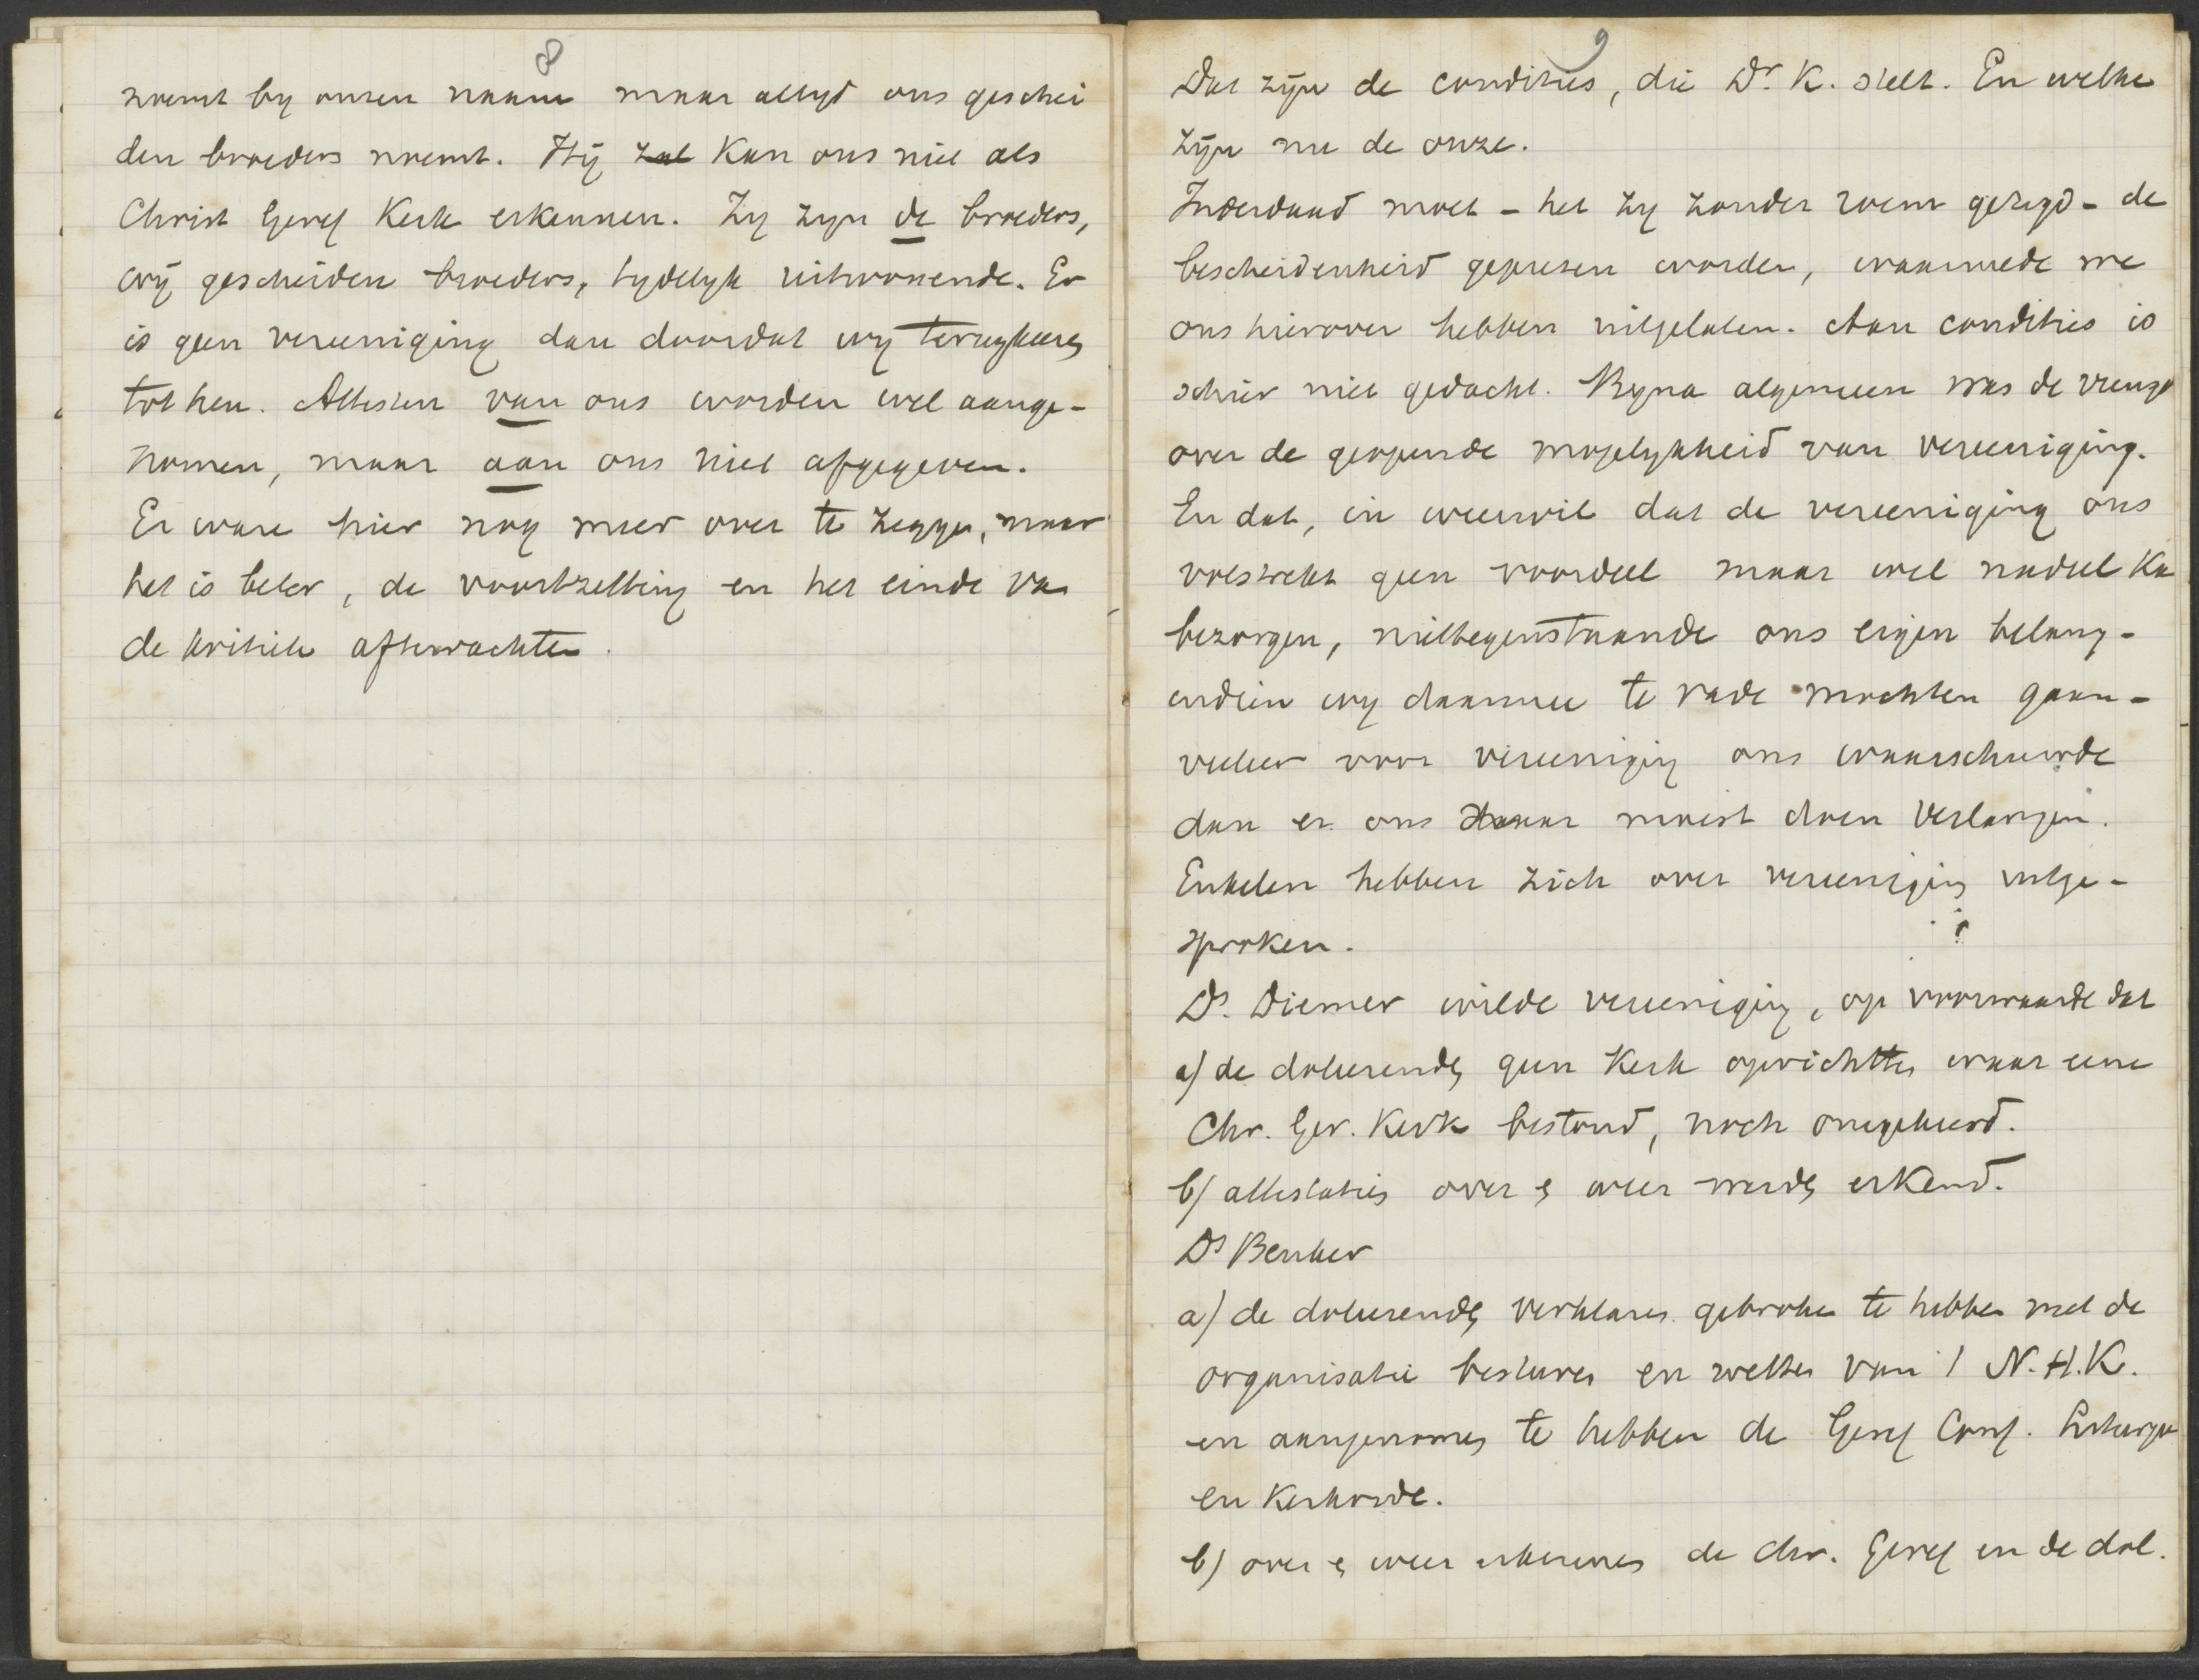 8
noemt by onzen naam maar altyd ons geschei
den broeders noemt. Hij zal kan ons niet als
Christ Geref Kerk erkennen. Zy zyn de broeders,
wij gescheiden broeders, tydelyk uitwonende. Er
is geen vereeniging dan doordat wy terugkeeren
tot hen. Attesten van ons worden wel aange-
nomen, maar aan ons niet afgegeven.
Er ware hier nog meer over te zeggen, maar
het is beter, de voortzetting en het einde van
de kritiek aftewachten.
9
Dat zijn de condities, die Dr. K. stelt. En welke
zijn nu de onze.
Inderdaad moet - het zy zonder roem gezegd - de
bescheidenheid geprezen worden, waarmede we
ons hierover hebben uitgelaten. Aan condities is
schier niet gedacht. Byna algemeen was de vreugd
over de geopende mogelykheid van vereeniging.
En dat, in weerwil dat de vereeniging ons
volstrekt geen voordeel maar wel nadeel kan
bezorgen, niettegenstaande ons eigen belang -
indien wy daarmee te rade mochten gaan -
veeleer voor vereeniging ons waarschuwde
dan er ons daar moest doen verlangen.
Enkelen hebben zich over vereeniging uitge-
sproken.
Ds. Diemer wilde vereeniging, op voorwaarde dat
a) de doleerenden geen Kerk oprichtten waar eene
Chr. Ger. Kerk bestond, noch omgekeerd.
b) attestaties over & weer werden erkend.
Ds Beuker
a) de doleerenden verklaren gebroken te hebben met de
organisatie besturen en wetten van 't N.H.K.
en aangenomen te hebben de Geref Conf. Liturgie
en Kerkorde.
b) over & weer erkennen de chr. Geref en de dol.